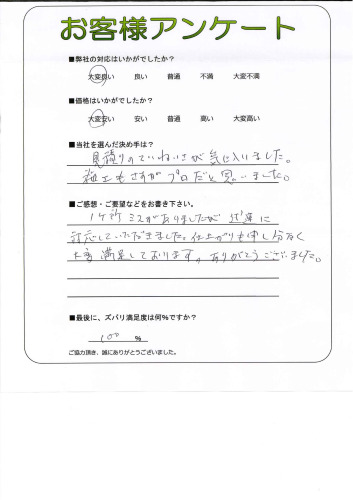 お客様アンケート
■弊社の対応はいかがでしたか?
大変良い 良い 普通 不満 大変不満
■価格はいかがでしたか?
大変安い 安い 普通 高い 大変高い
■当社を選んだ決め手は?
見積りのていねいさが気に入りました。
施工もさすがプロだと思いました。
■ご感想・ご要望などをお書き下さい。
1ヶ所ミスがありましたが迅速に
対応していただきました。仕上がりも申し分なく
大変満足しております。ありがとうございました。
■最後に、ズバリ満足度は何%ですか?
100 %
ご協力頂き、誠にありがとうございました。